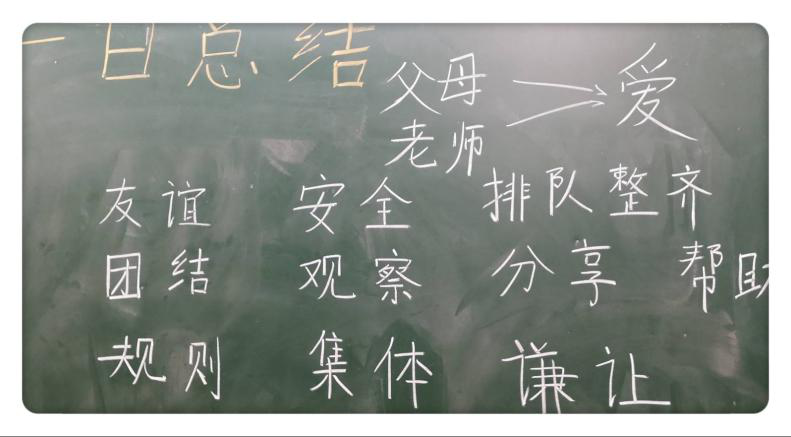 一日总结
父母 → 爱
老师
友谊 安全 排队整齐
团结 观察 分享 帮助
规则 集体 谦让